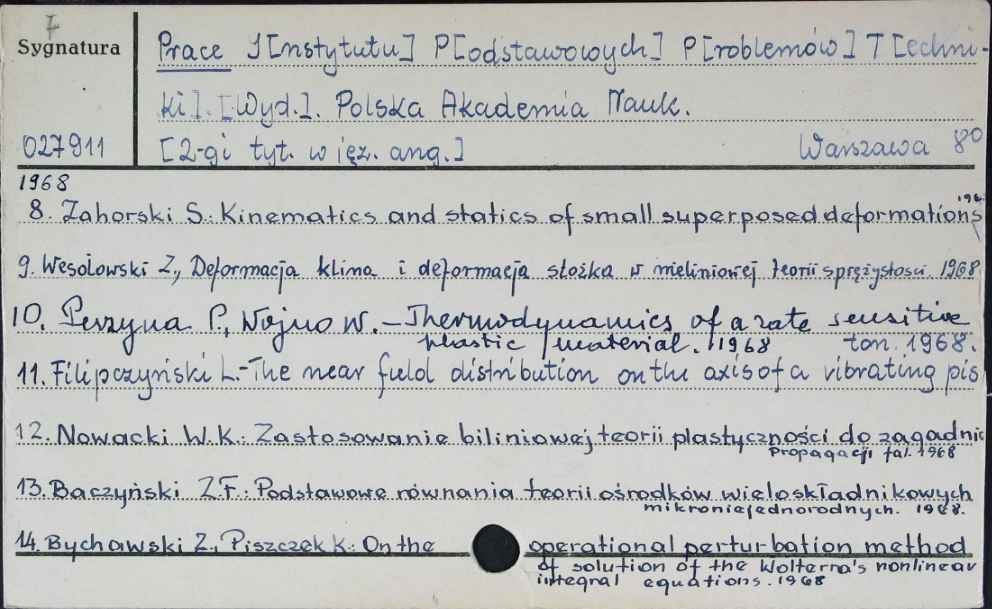 7
Sygnatura
Prace I[nstytutu] P[odstawowych] P[roblemów] T[echni-
ki]. [Wyd.]. Polska Akademia Nauk.
027911 [2-gi tyt. w jęz. ang.] Warszawa 8⁰
1968
8. Zahorski S.: Kinematics and statics of small superposed deformations 196
9. Wesołowski Z., Deformacja klina i deformacja stożka w nieliniowej teorii sprężystości. 1968
10. Perzyna P., Wojno W. – Thermodynamics of a rate sensitive
plastic material. 1968
11. Filipczyński L. – The near field distribution on the axis of a vibrating pis
ton. 1968.
12. Nowacki W.K.: Zastosowanie biliniowej teorii plastyczności do zagadnic
propagacji fal. 1968
13. Baczyński Z.F.: Podstawowe równania teorii ośrodków wieloskładnikowych
mikroniejednorodnych. 1968.
14. Bychawski Z., Piszczek K.: On the operational perturbation method
of solution of the Wolterra's nonlinear
integral equations. 1968